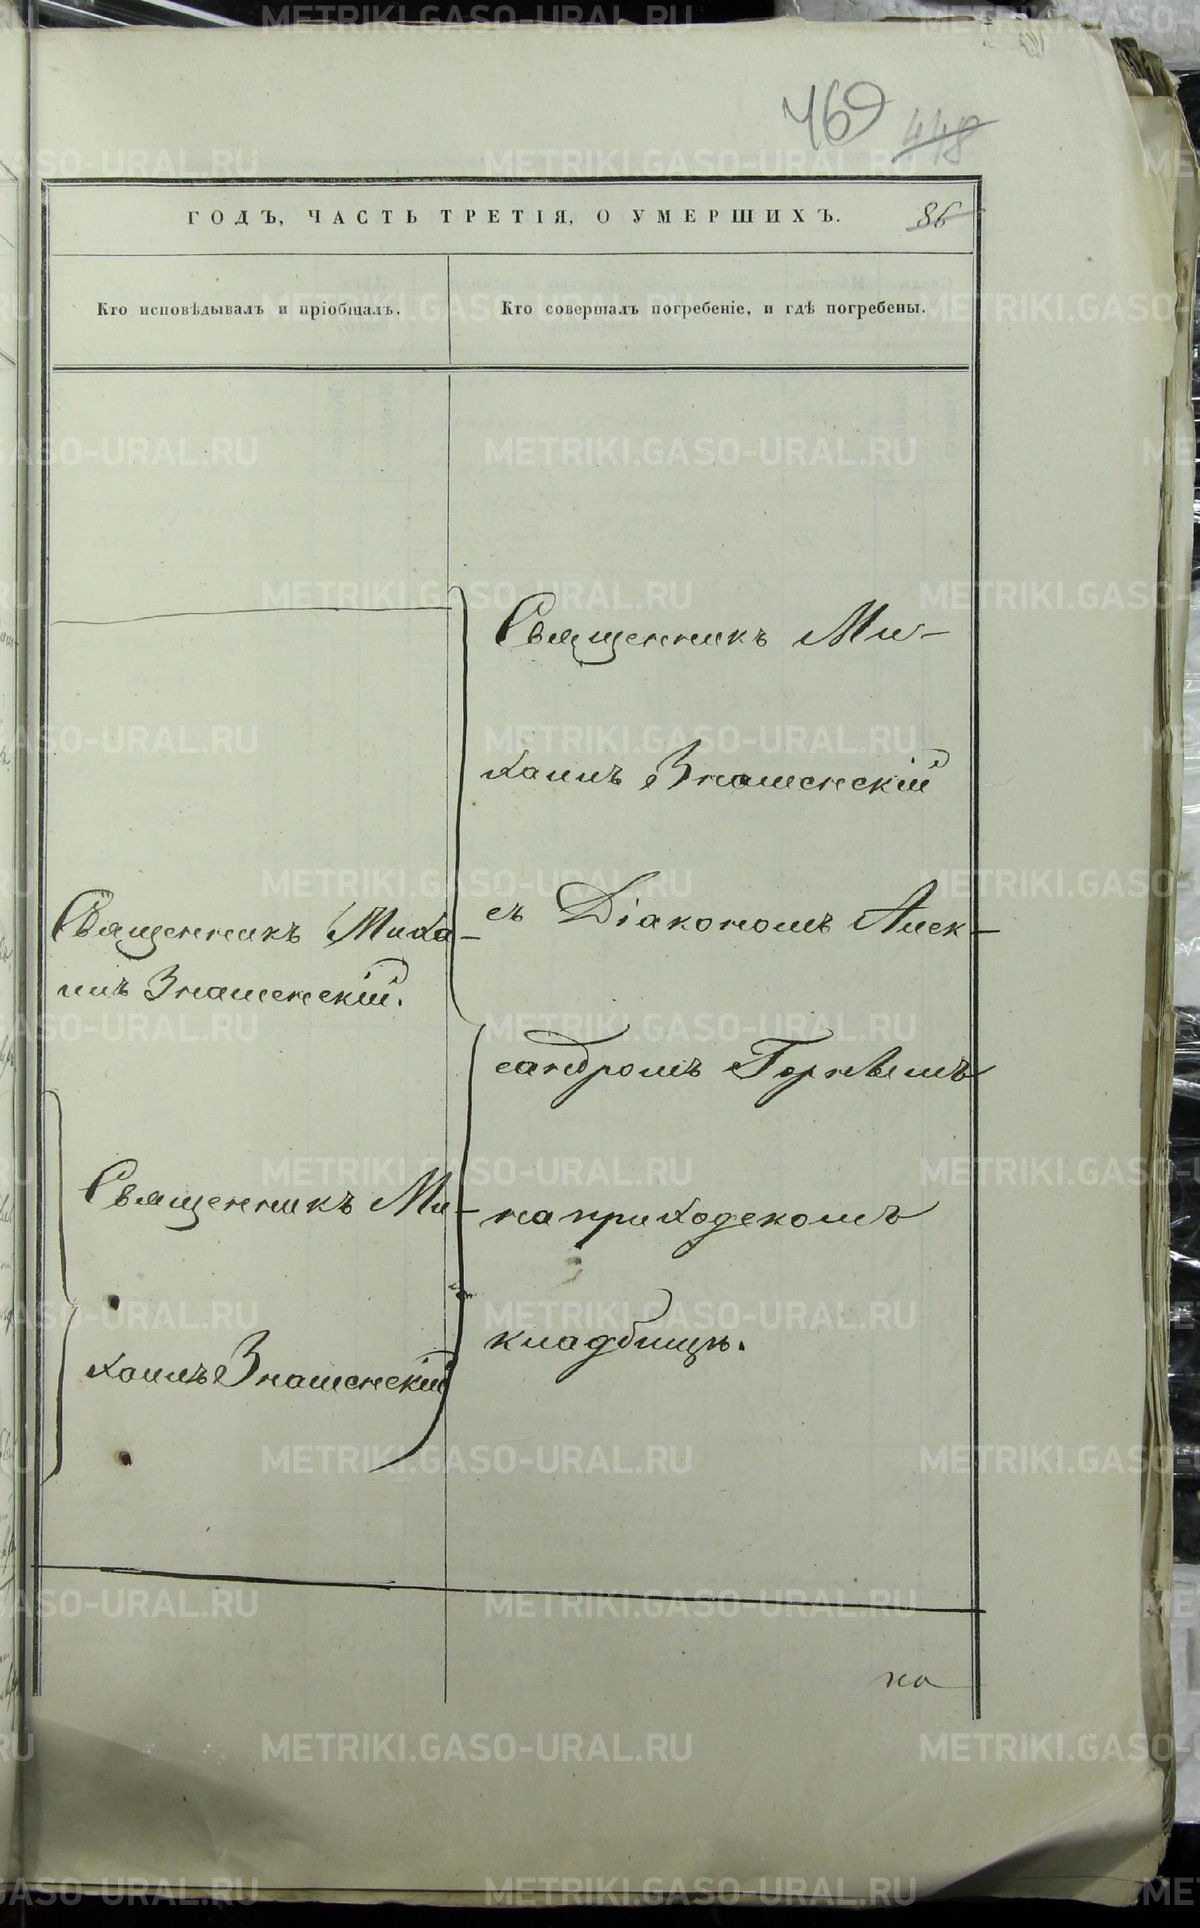 469 448
ГОДЪ, ЧАСТЬ ТРЕТІЯ, О УМЕРШИХЪ. 86
Кто исповѣдывалъ и пріобщалъ.
Кто совершалъ погребеніе, и гдѣ погребены.
Священникъ Миха-
илъ Знаменскій.
Священникъ Ми-
хаилъ Знаменскій
Священникъ Ми-
хаилъ Знаменскій
съ Діакономъ Алек-
сандромъ Горнымъ
на приходскомъ
кладбищѣ.
на
METRIKI.GASO-URAL.RU